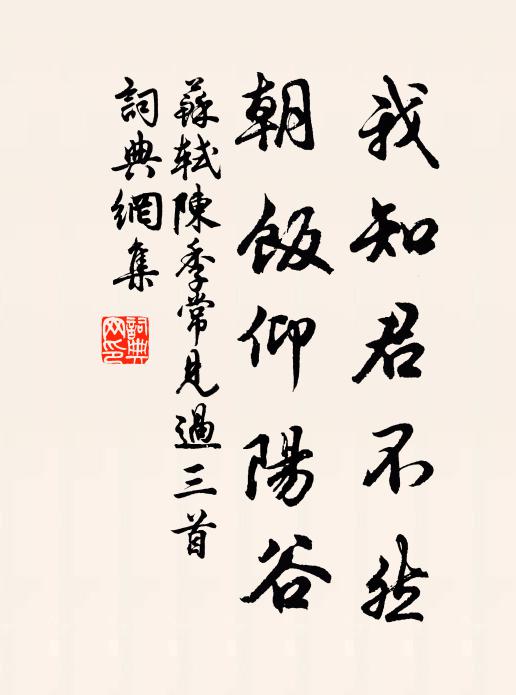 我知君不然
朝飯仰陽谷
蘇軾陳季常見過三首
詞典網集
詞典网印